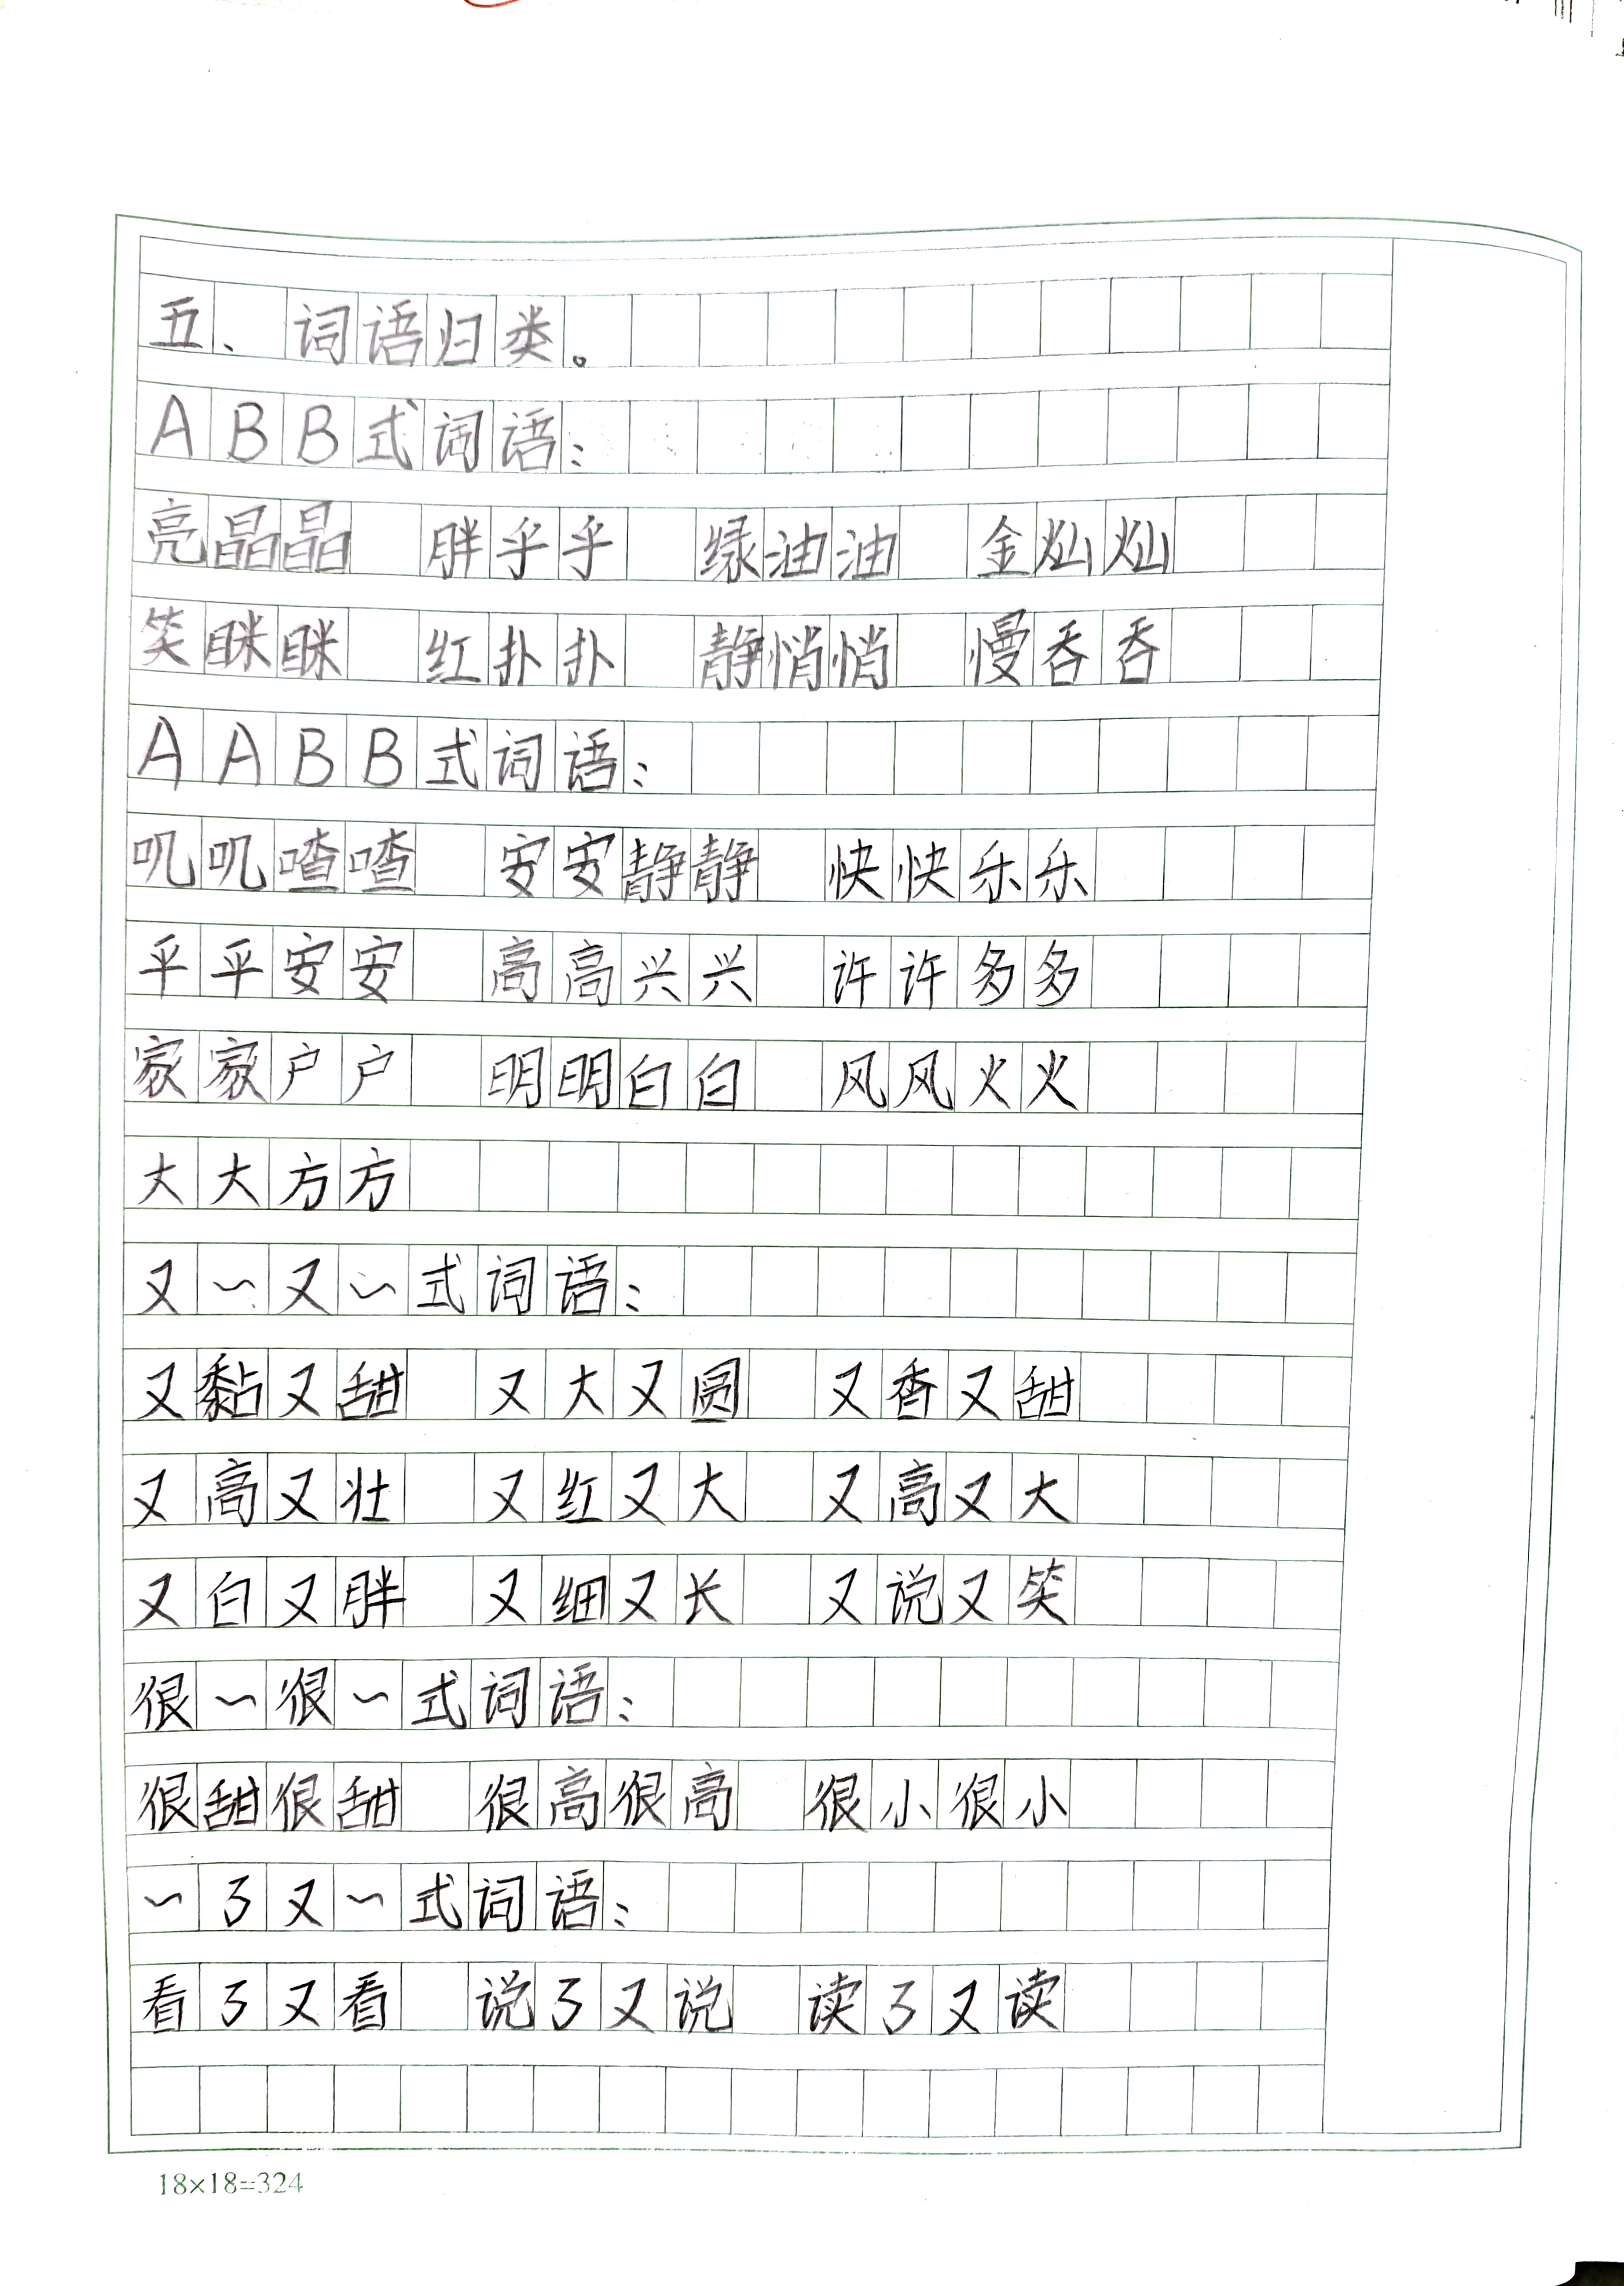 五、词语归类。
ABB式词语：
亮晶晶 胖乎乎 绿油油 金灿灿
笑眯眯 红扑扑 静悄悄 慢吞吞
AABB式词语：
叽叽喳喳 安安静静 快快乐乐
平平安安 高高兴兴 许许多多
家家户户 明明白白 风风火火
大大方方
又~又~式词语：
又黏又甜 又大又圆 又香又甜
又高又壮 又红又大 又高又大
又白又胖 又细又长 又说又笑
很~很~式词语：
很甜很甜 很高很高 很小很小
~了又~式词语：
看了又看 说了又说 读了又读
18×18=324